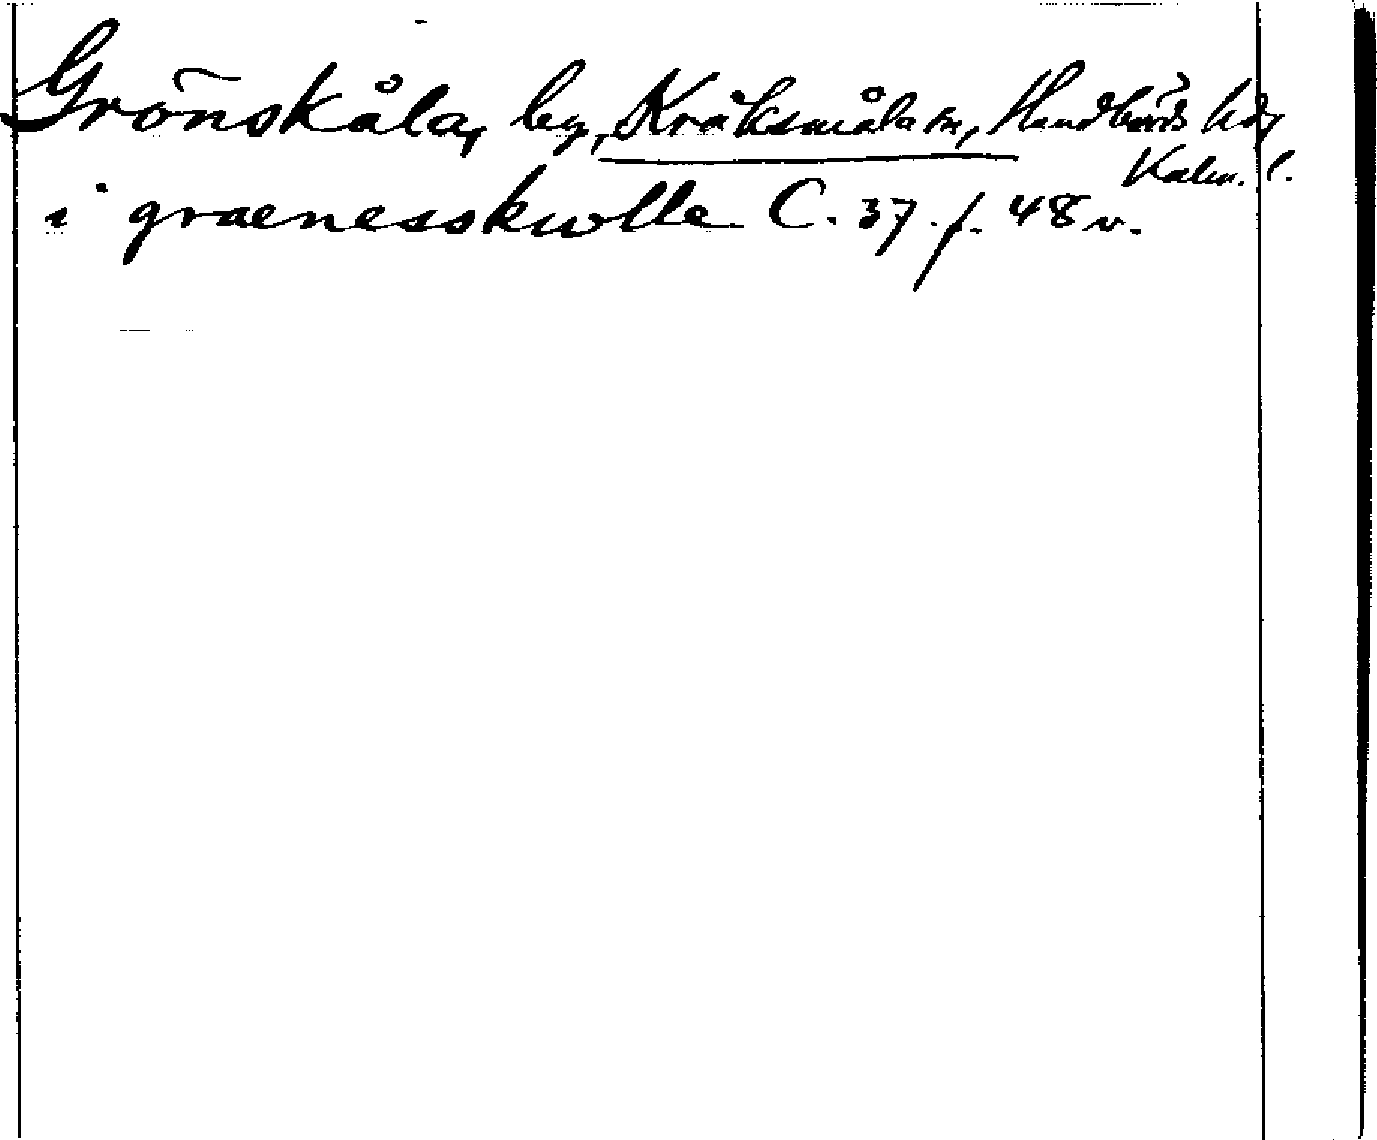 Grönskåla, by, Kråksmåla sn, Handbörds hd,
Kalm. l.
i graenesskwlle C. 37. f. 48 v.